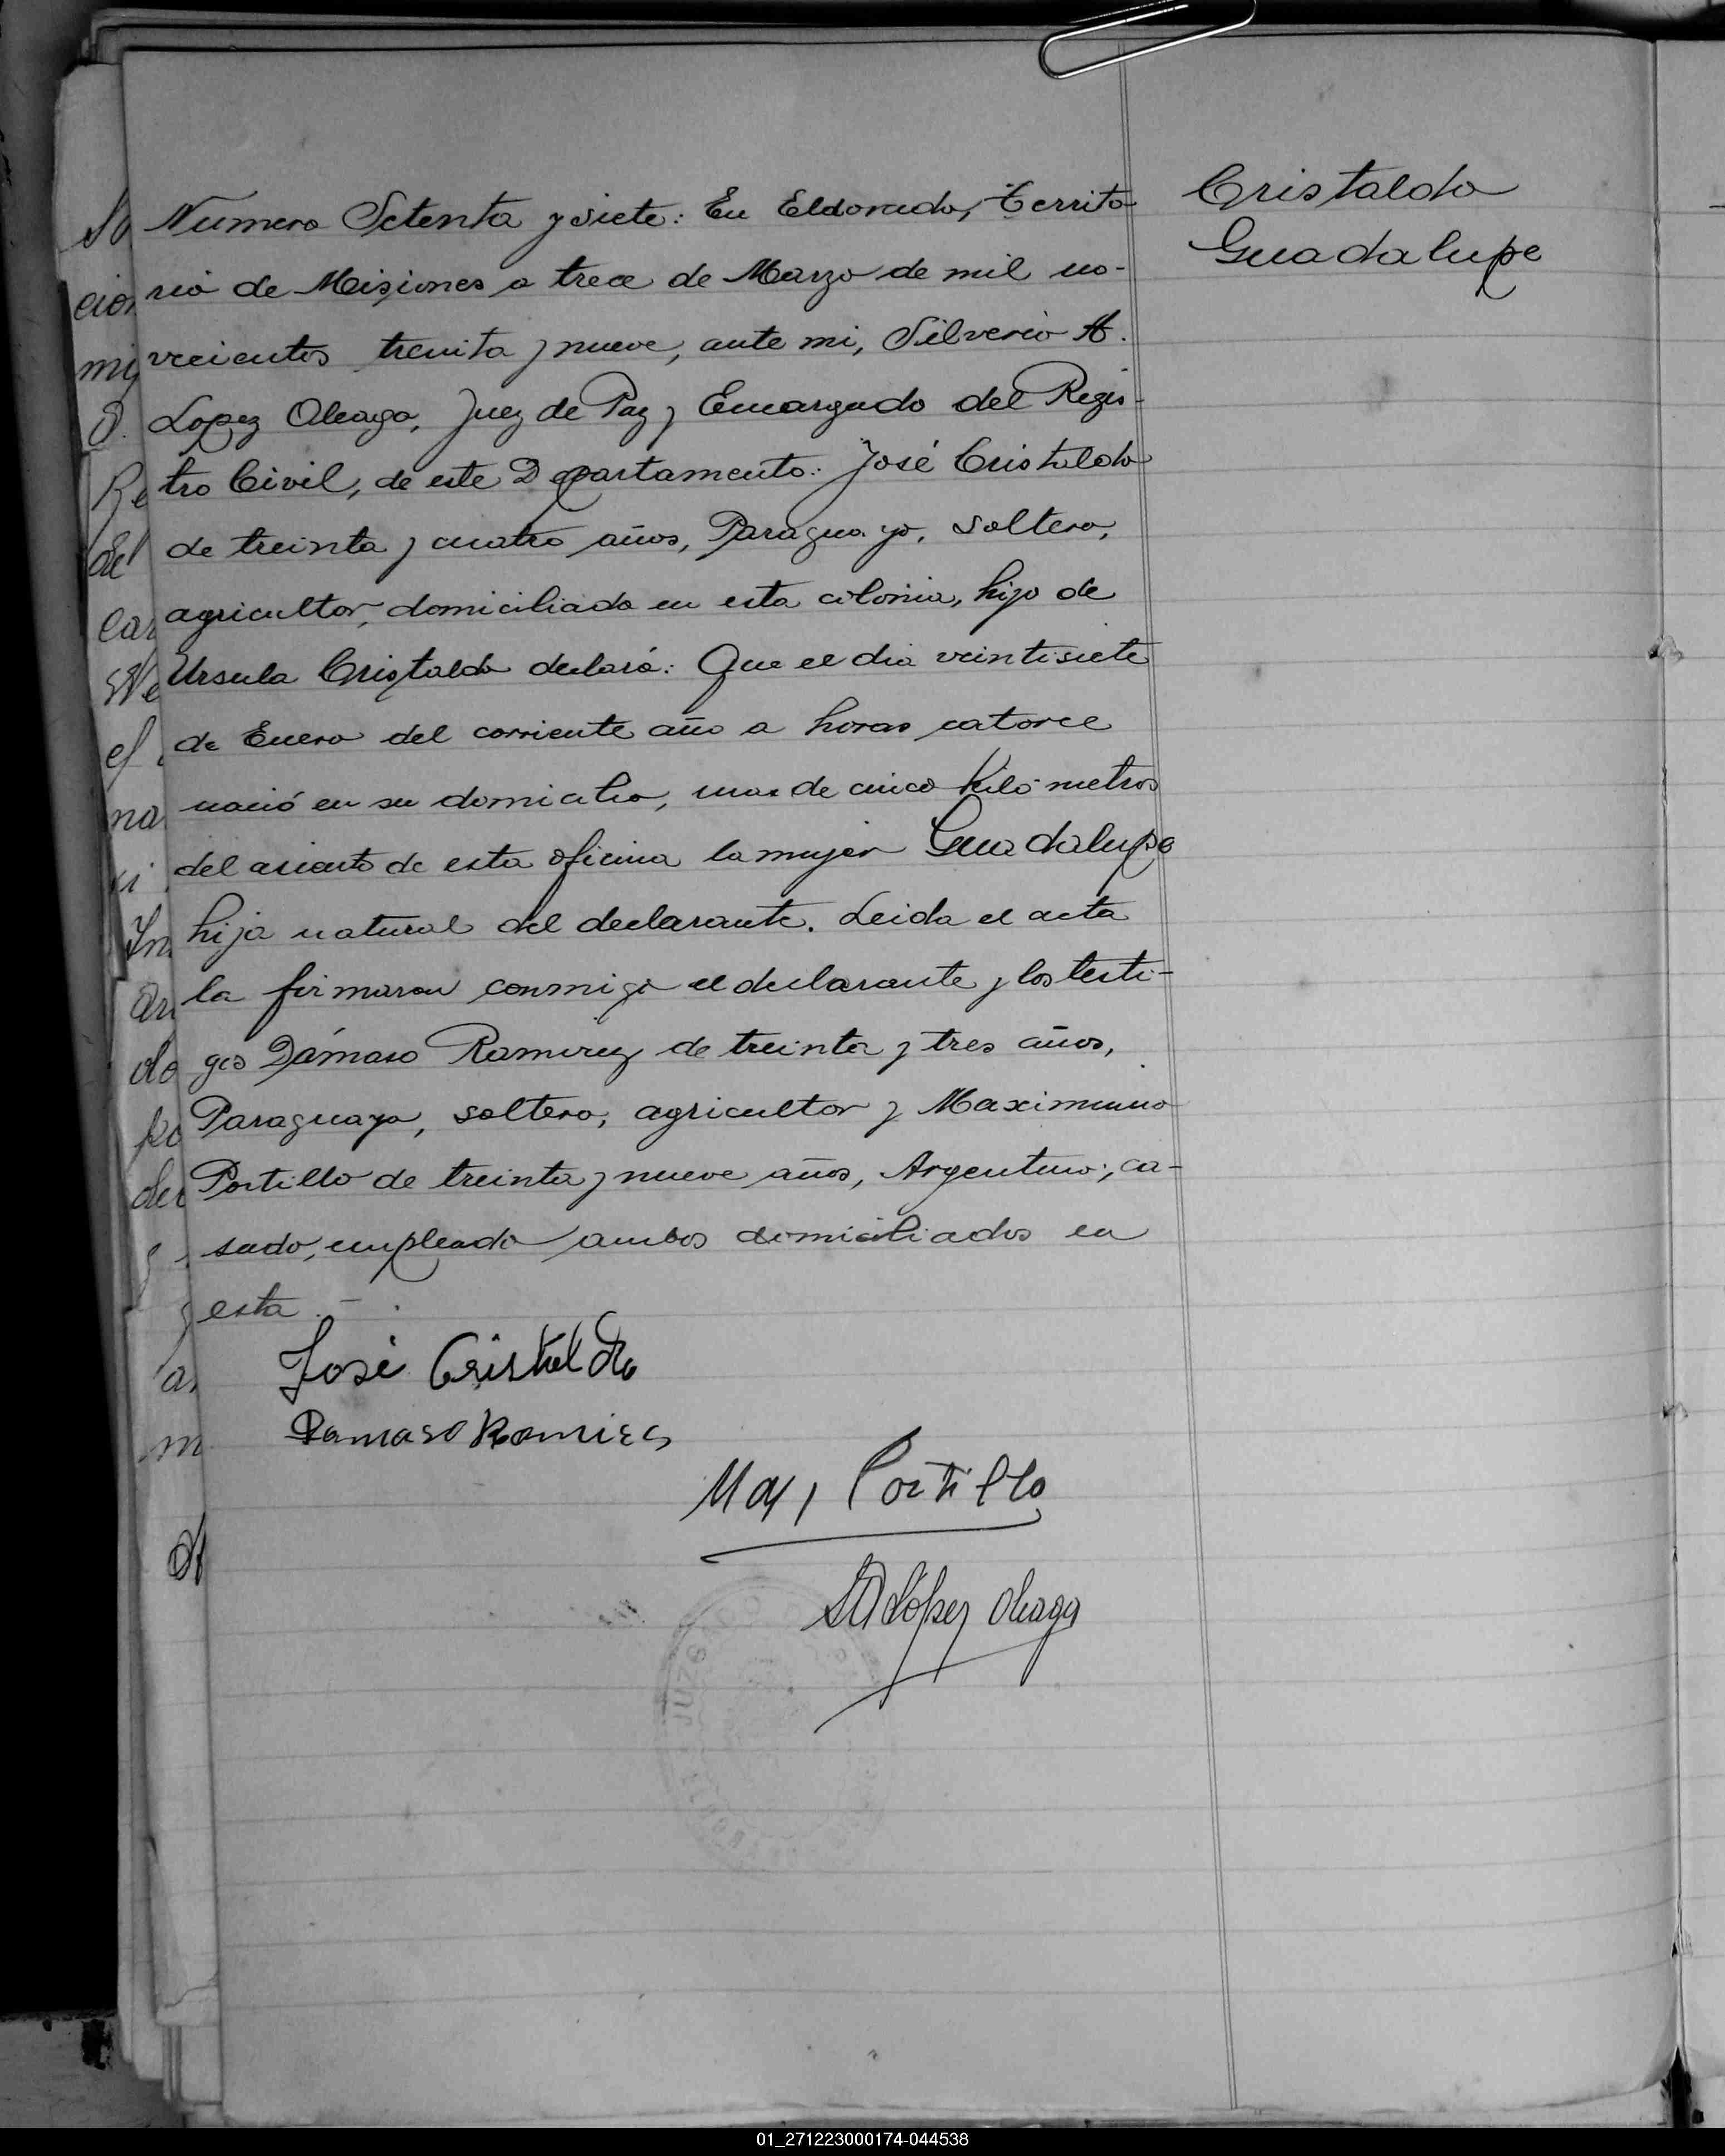 Cristaldo
Guadalupe
Numero Setenta y siete: En Eldorado, Territo-
rio de Misiones a trece de Marzo de mil no-
vecientos treinta y nueve, ante mi, Silverio A.
Lopez Aleaga, Juez de Paz y Encargado del Regis-
tro Civil, de este Departamento: José Cristaldo
de treinta y cuatro años, Paraguayo, soltero,
agricultor, domiciliado en esta colonia, hijo de
Ursula Cristaldo declaró: Que el dia veintisiete
de Enero del corriente año a horas catorce
nació en su domicilio, mas de cinco Kilómetros
del asiento de esta oficina la mujer Guadalupe
hija natural del declarante. Leida el acta
la firmaron conmigo el declarante y los testi-
gos Dámaso Ramirez de treinta y tres años,
Paraguayo, soltero, agricultor y Maximiano
Portillo de treinta y nueve años, Argentino, ca-
sado, empleado ambos domiciliados en
esta.-
José Cristaldo
Damaso Ramires
Max, Portillo
SA López Aleaga
JUZG
01_271223000174-044538